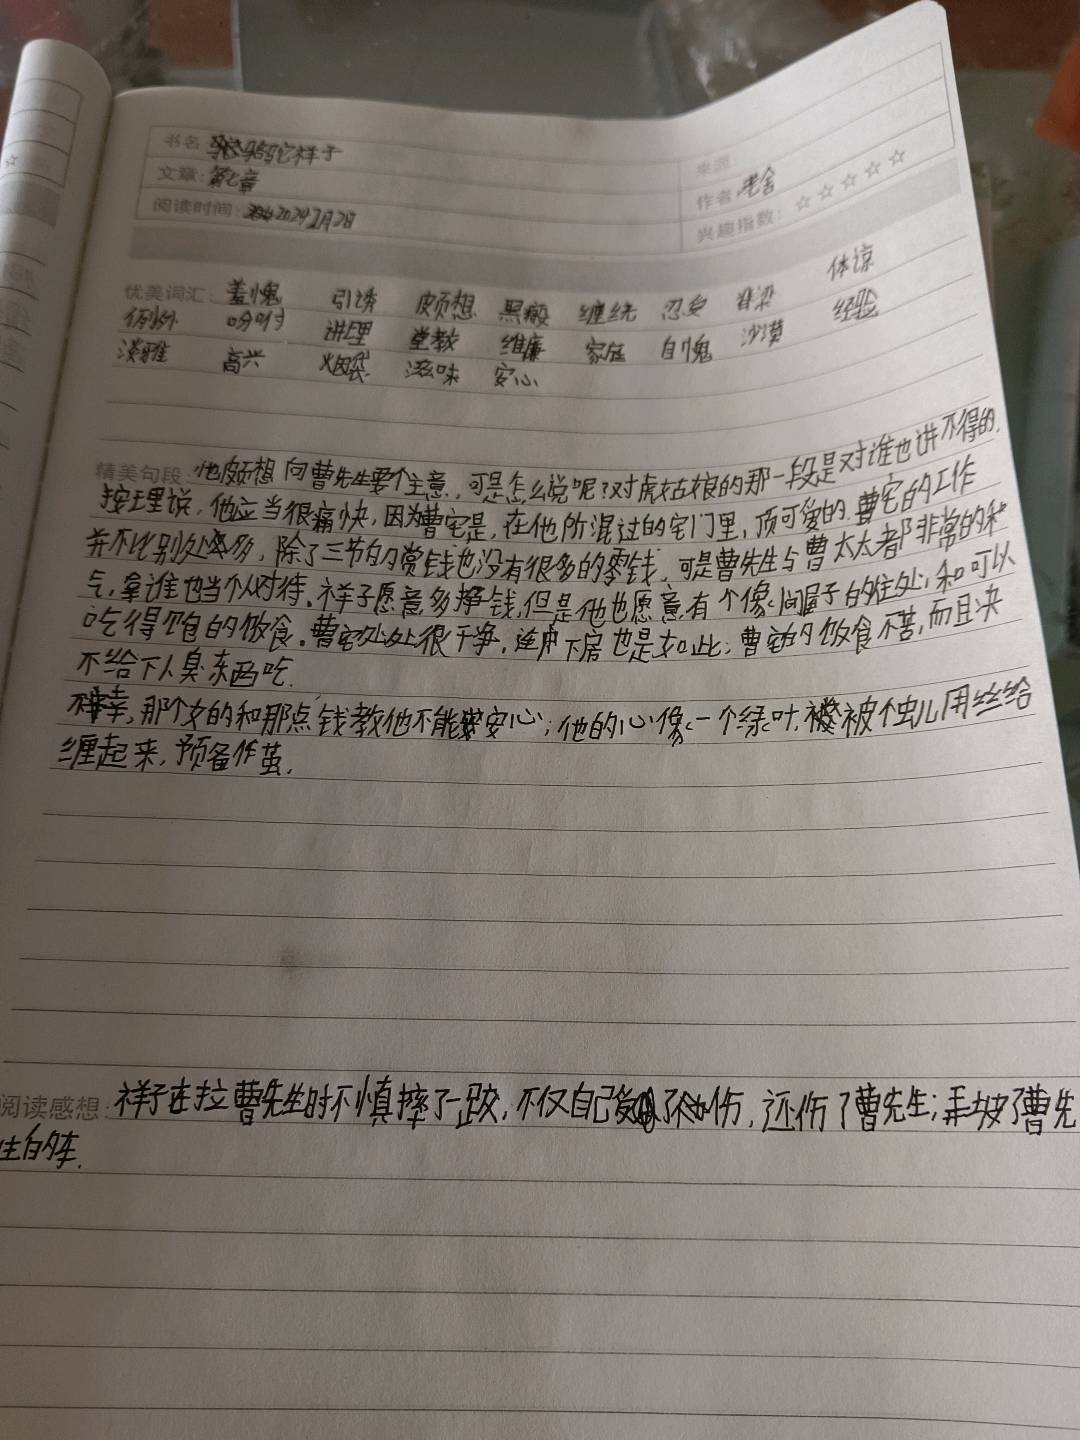 书名: 骆驼祥子
来源:
文章: 第七章
作者: 老舍
阅读时间: 2024 2月2日
兴趣指数: ☆☆☆☆☆
优美词汇: 羞愧 引诱 颇想 黑瘢 缠绕 忍受 脊梁 体谅
例外 吩咐 讲理 堂教 维廉 家庭 自愧 沙漠 经验
淡雅 高兴 烟袋 滋味 安心
精美句段: 他颇想向曹先生要个主意,可是怎么说呢?对虎姑娘的那一段是对谁也讲不得的.
按理说,他应当很痛快,因为曹宅是,在他所混过的宅门里,顶可爱的.曹宅的工作
并不比别处多,除了三节的赏钱也没有很多的零钱,可是曹先生与曹太太都非常的和
气,拿谁也当个人对待。祥子愿意多挣钱,但是他也愿意有个像间屋子的住处,和可以
吃得饱的饭食。曹宅处处很干净,连下房也是如此;曹宅的饭食不苦,而且决
不给下人臭东西吃.
不幸,那个女的和那点钱教他不能安心;他的心像一个绿叶,被个虫儿用丝给
缠起来,预备作茧.
阅读感想: 祥子在拉曹先生时不慎摔了一跤,不仅自己伤,还伤了曹先生;弄坡了曹先
生的车.